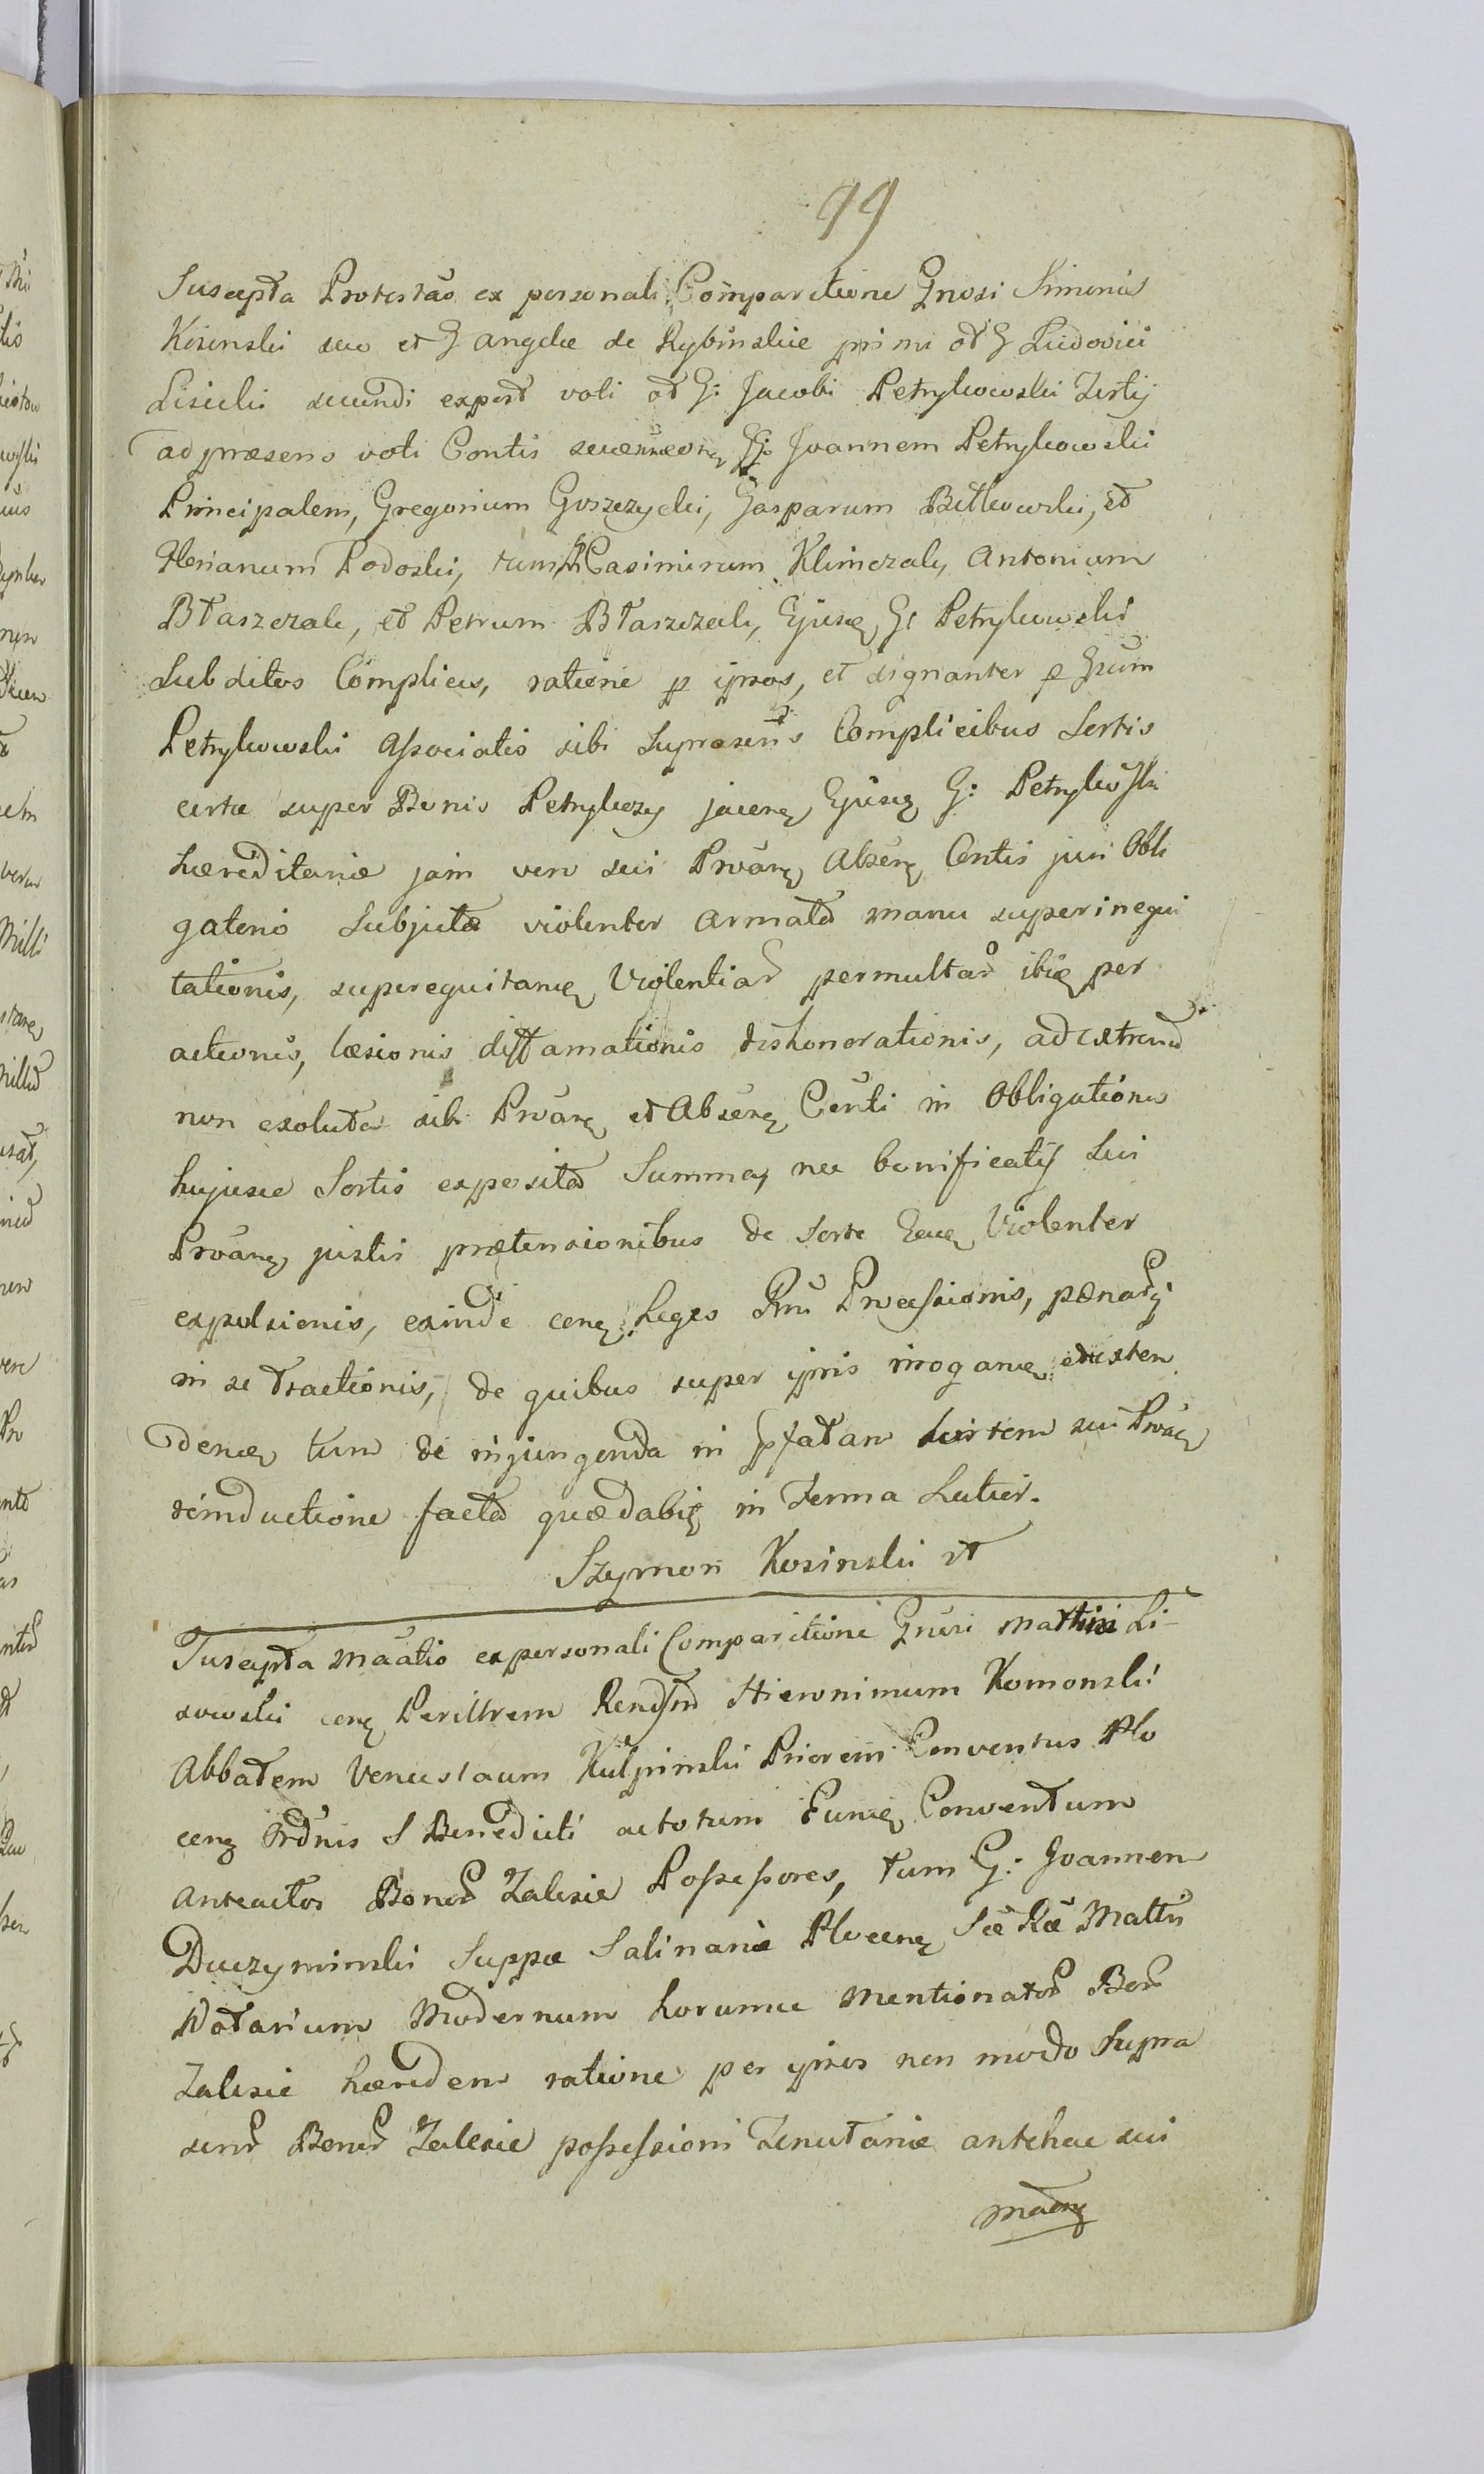 99
Suscepta Protestão ex personali Comparitione Gnosi Simonis
Kosinski suo et G Angelæ de Rybinskie primi et G Ludovici
Lisicki secundi expost voti et G: Jacobi Petrykowski Tertij
ad præsens voti Contis G: Joannem Petrykowski
Principalem, Gregorium Goszczycki, Gasparum Bętkowski, et
Florianum Podoski, tum Casimirum Klimczak, Antonium
Błaszczak, et Petrum Błaszczak, Ejusq G: Petrykowski
Subditos Complices, ratione p ipsos, et signanter p Gsum
Petrykowski Associatis sibi Suprasctis Complicibus Sortis
certæ super Bonis Petrykozy jacenq Ejusq G: Petrykoski
hæreditariæ jam vero sui Prôanq Absenq Contis juri Obli
gatorio Subjectæ violenter armata manu superinequi
tationis, superequitanq Violentiar permultar ibiq per
actionis, læsionis diffamationis dishonorationis, ad extremum
non exoluta sibi Prôanq et Absenq Conti in Obligatione
hujusce Sortis exposita Summa, nec bonificatij Sui
Prôanq justis prætensionibus de sorte Eaq Violenter
expulsionis, exinde conq Leges Rni Processionis, pænarq
in se tractionis, de quibus super ipsis irroganq exten
denq tum de injungenda in pfatam sortem sui Prôanq
reinductione facta quædabiq in Forma Latior.
Szymon Kosinski et
Suscepta Mãatio ex personali Comparitione Gnsi Martini Li-
sowski conq Perillrem Rendsm Hieronimum Komonski
Abbatem Kulpinski Priorem Conventus Plo
cenq Ordnis S Benedicti ac totum Eumq Conventum
anteactos Bonor Zalesie Possessores, tum G: Joannem
Duczyminski Suppæ Salinariæ Plocenq Sæ Ræ Mattis
Notarium Modernum horumce Mentionator Bonor
Zalesie hæredem ratione per ipsos non modo Supra
scrip Bonor Zalesie possessioni Tenutariæ antehac sui
Mãanq